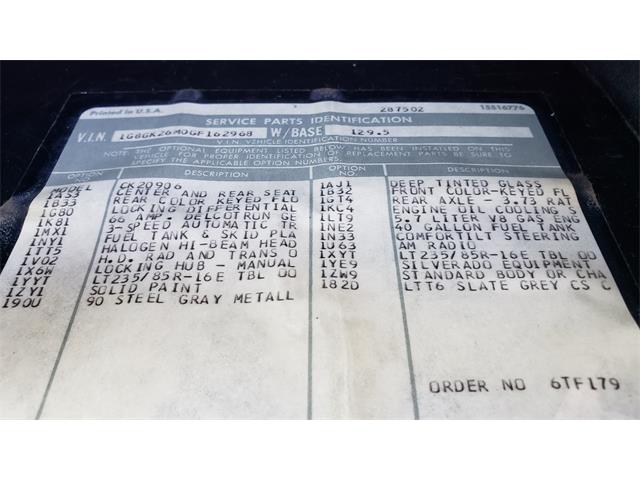 Printed in U.S.A.
287502
15516776
SERVICE PARTS IDENTIFICATION
V.I.N. 1G8GK26M0GF162968 W/BASE 129.5
V.I.N. VEHICLE IDENTIFICATION NUMBER
THE OPTIONAL EQUIPMENT LISTED BELOW, HAS BEEN INSTALLED ON THIS
VEHICLE FOR PROPER IDENTIFICATION OF REPLACEMENT PARTS BE SURE TO
SPECIFY THE APPLICABLE OPTION NUMBERS.
OPTION DESCRIPTION
MODEL CK20906
1A53 CENTER AND REAR SEAT
1B33 REAR COLOR KEYED FLO
1G80 LOCKING DIFFERENTIAL
1K81 66 AMP. DELCOTRON GE
1MX1 3-SPEED AUTOMATIC TR
1NY1 FUEL TANK & SKID PLA
1TT5 HALOGEN HI-BEAM HEAD
1V02 H.D. RAD AND TRANS O
1X6W LOCKING HUB - MANUAL
1YYT LT235/85R-16E TBL OO
1ZY1 SOLID PAINT
190U 90 STEEL GRAY METALL
OPTION DESCRIPTION
1AJ1 DEEP TINTED GLASS
1B32 FRONT COLOR-KEYED FL
1GT4 REAR AXLE - 3.73 RAT
1KC4 ENGINE OIL COOLING S
1LT9 5.7 LITER V8 GAS ENG
1NE2 40 GALLON FUEL TANK
1N33 COMFORTILT STEERING
1U63 AM RADIO
1XYT LT235/85R-16E TBL OO
1YE9 SILVERADO EQUIPMENT
1ZW9 STANDARD BODY OR CHA
182D LTT6 SLATE GREY CS C
ORDER NO 6TF179